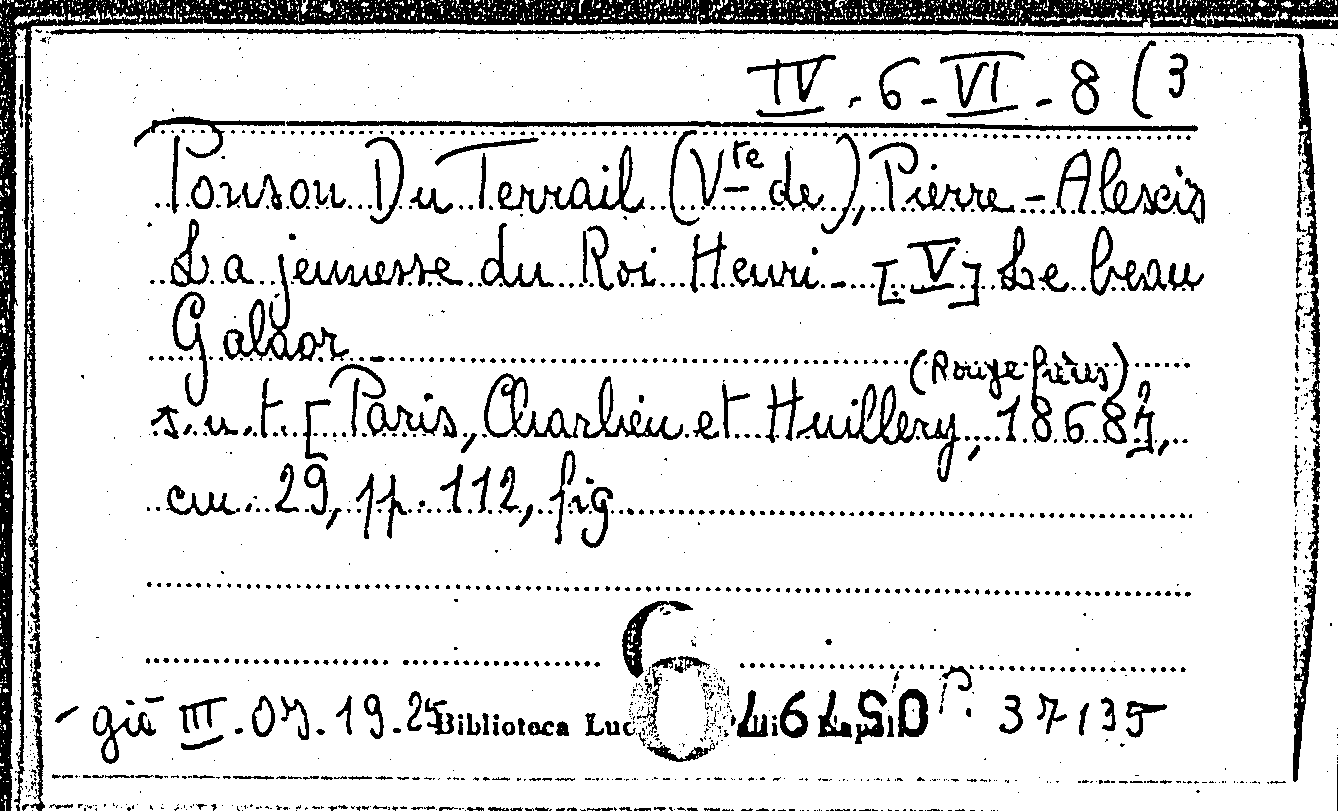 IV-6-VI-8(3
Ponson Du Terrail (Vte de), Pierre-Alexis
La jeunesse du Roi Henri - [V] Le beau
Galaor -
(Rouge frères)
s.n.t. [Paris, Charlieu et Huillery, 1868?],
cm. 29, pp. 112, fig
- già III.07.19.25 Biblioteca P. 37135